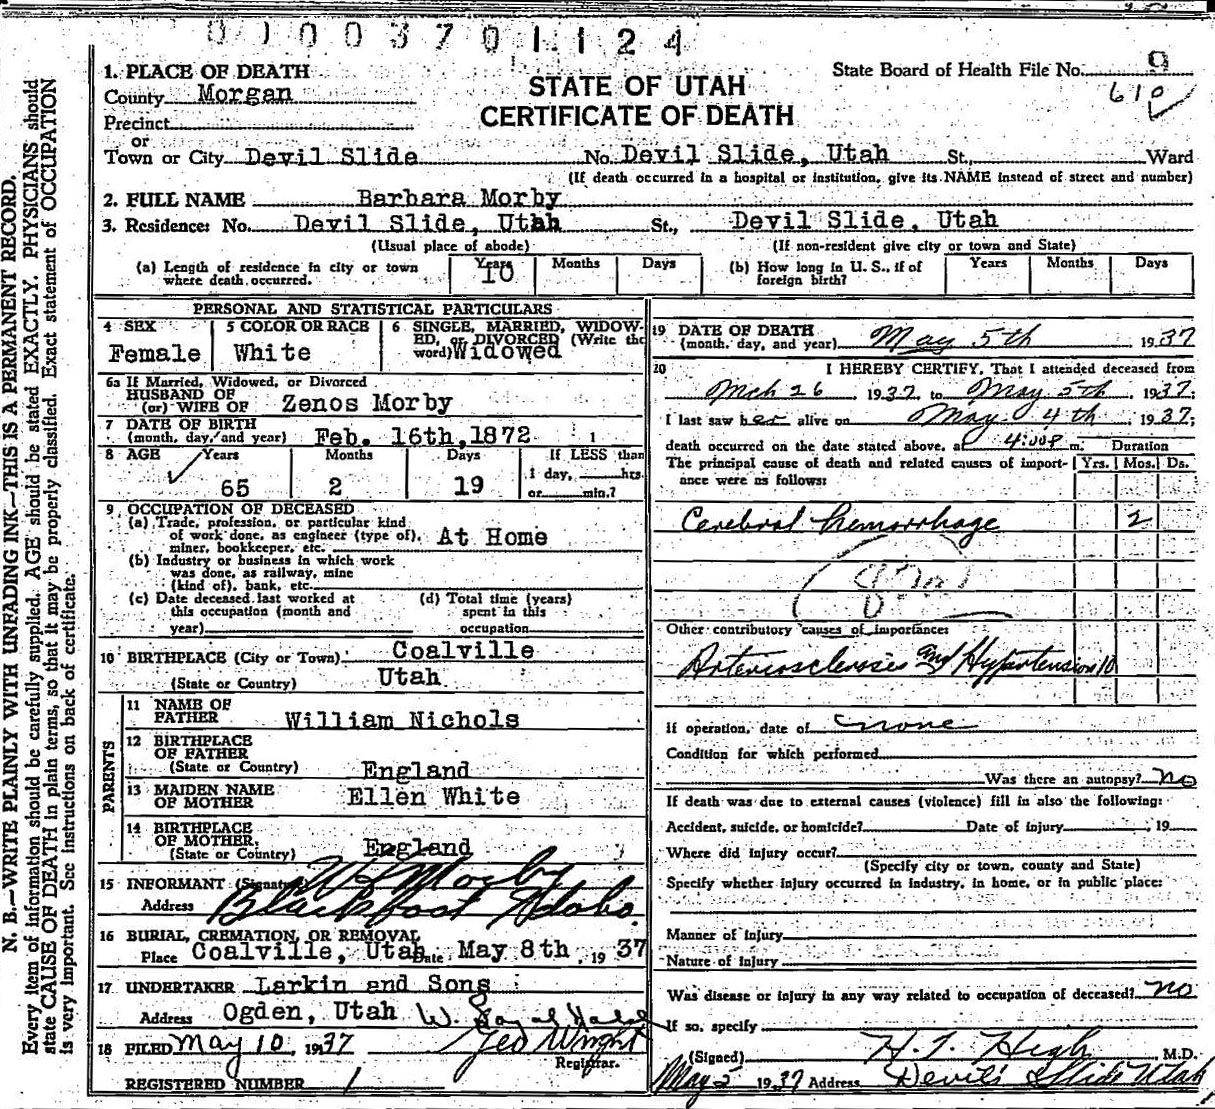 0100370 1124
1. PLACE OF DEATH
County Morgan
STATE OF UTAH
CERTIFICATE OF DEATH
State Board of Health File No. 9
610
Precinct
or
Town or City Devil Slide No. Devil Slide, Utah St., Ward
(If death occurred in a hospital or institution, give its NAME instead of street and number)
2. FULL NAME Barbara Morby
3. Residence: No. Devil Slide, Utah St., Devil Slide, Utah
(Usual place of abode) (If non-resident give city or town and State)
(a) Length of residence in city or town where death occurred. Years 10 Months Days
(b) How long in U. S., if of foreign birth? Years Months Days
PERSONAL AND STATISTICAL PARTICULARS
4 SEX Female
5 COLOR OR RACE White
6 SINGLE, MARRIED, WIDOWED, or DIVORCED (Write the word) Widowed
6a If Married, Widowed, or Divorced
HUSBAND OF
(or) WIFE OF Zenos Morby
7 DATE OF BIRTH
(month, day, and year) Feb. 16th, 1872
8 AGE Years Months Days If LESS than
1 day, hrs.
65 2 19 or min.?
9 OCCUPATION OF DECEASED
(a) Trade, profession, or particular kind
of work done, as engineer (type of),
miner, bookkeeper, etc. At Home
(b) Industry or business in which work
was done, as railway, mine
(kind of), bank, etc.
(c) Date deceased last worked at
this occupation (month and
year)
(d) Total time (years)
spent in this
occupation
10 BIRTHPLACE (City or Town) Coalville
(State or Country) Utah
PARENTS
11 NAME OF
FATHER William Nichols
12 BIRTHPLACE
OF FATHER
(State or Country) England
13 MAIDEN NAME
OF MOTHER Ellen White
14 BIRTHPLACE
OF MOTHER,
(State or Country) England
15 INFORMANT (Signature) Morby
Address Blackfoot Idaho
16 BURIAL, CREMATION, OR REMOVAL
Place Coalville, Utah Date May 8th, 1937
17 UNDERTAKER Larkin and Sons
Address Ogden, Utah W.
18 FILED May 10, 1937 Geo Wright
Registrar.
REGISTERED NUMBER 1
19 DATE OF DEATH
(month, day, and year) May 5th 1937
20 I HEREBY CERTIFY, That I attended deceased from
Mch 26, 1937, to May 5th, 1937;
I last saw her alive on May 4th, 1937;
death occurred on the date stated above, at 4:00P m. Duration
The principal cause of death and related causes of importance were as follows: Yrs. Mos. Ds.
Cerebral hemorrhage 2
Other contributory causes of importance:
Arteriosclerosis and Hypertension 10
If operation, date of none
Condition for which performed
Was there an autopsy? no
If death was due to external causes (violence) fill in also the following:
Accident, suicide, or homicide? Date of injury , 19
Where did injury occur?
(Specify city or town, county and State)
Specify whether injury occurred in industry, in home, or in public place:
Manner of injury
Nature of injury
Was disease or injury in any way related to occupation of deceased? no
If so, specify
(Signed) H. I. High, M.D.
May 5 1937 Address Devil's Slide Utah
N. B.—WRITE PLAINLY WITH UNFADING INK—THIS IS A PERMANENT RECORD.
Every item of information should be carefully supplied. AGE should be stated EXACTLY. PHYSICIANS should
state CAUSE OF DEATH in plain terms, so that it may be properly classified. Exact statement of OCCUPATION
is very important. See instructions on back of certificate.